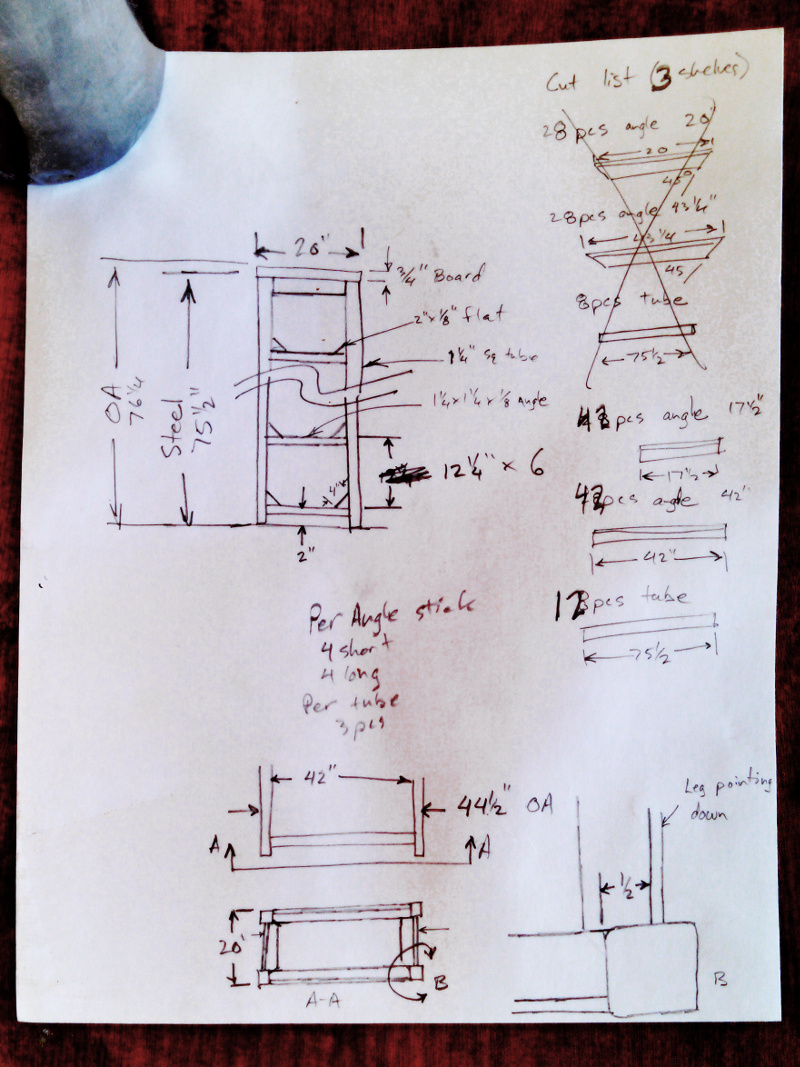 Cut list (3 shelves)
28 pcs angle 20"
20
45°
28 pcs angle 43 1/4"
43 1/4
45
8 pcs tube
75 1/2
pcs angle 17 1/2"
17 1/2
pcs angle 42"
42"
12 pcs tube
75 1/2
20"
3/4" Board
2" x 1/8" flat
1 1/4" sq tube
1 1/4 x 1 1/4 x 1/8 angle
OA
76 1/4
Steel
75 1/2"
12 1/4" x 6
4"
2"
Per Angle stick
4 short
4 long
Per tube
3 pcs
42"
44 1/2" OA
A
A
20"
B
A-A
Leg pointing
down
1/2
B